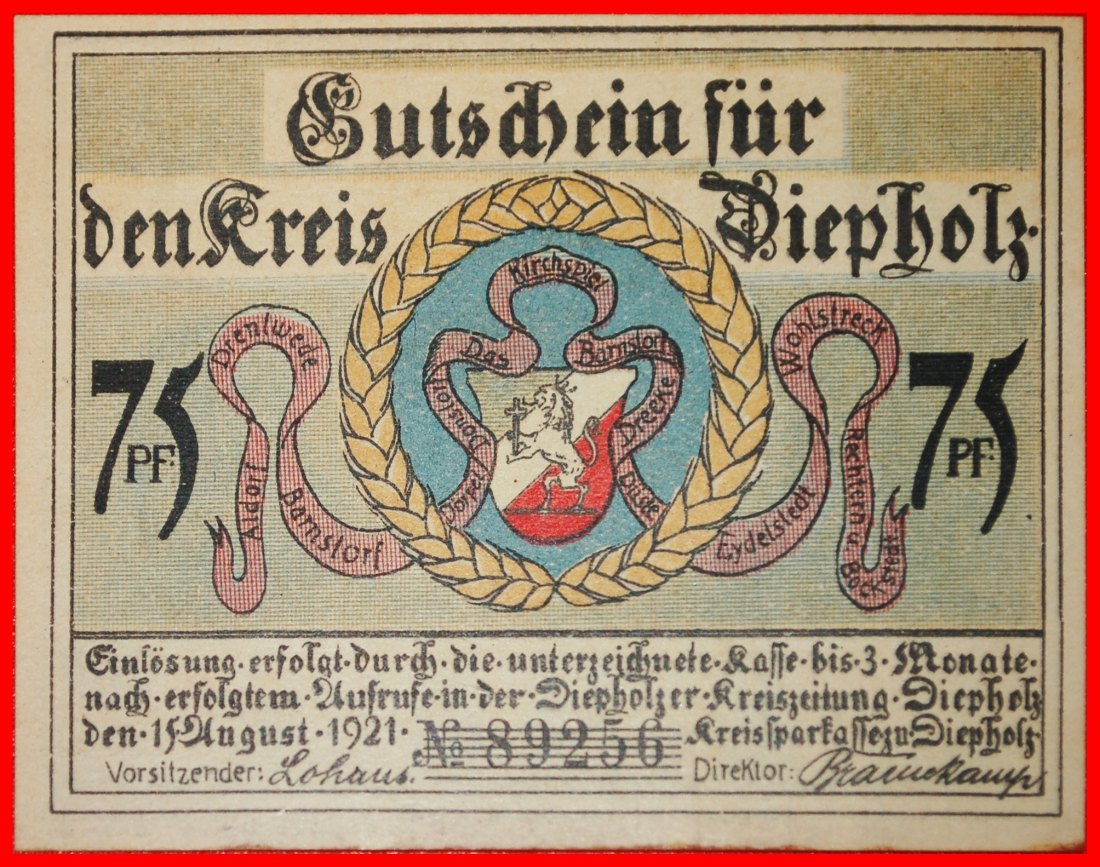 Gutschein für
den Kreis Diepholz.
Das Kirchspiel Barnstorf
Drentwede
Wohlstreck
75 PF.
75 PF.
Aldorf
Barnstorf
Donstorf
Dörpel
Dreeke
Düste
Eydelstedt
Rechtern u.
Bockstedt
Einlösung · erfolgt · durch · die · unterzeichnete · Kasse · bis · 3 · Monate ·
nach · erfolgtem · Aufrufe · in · der · Diepholzer · Kreiszeitung · Diepholz
den · 15 · August · 1921 · No 89256 Kreissparkasse zu Diepholz
Vorsitzender: Lohaus. Direktor: